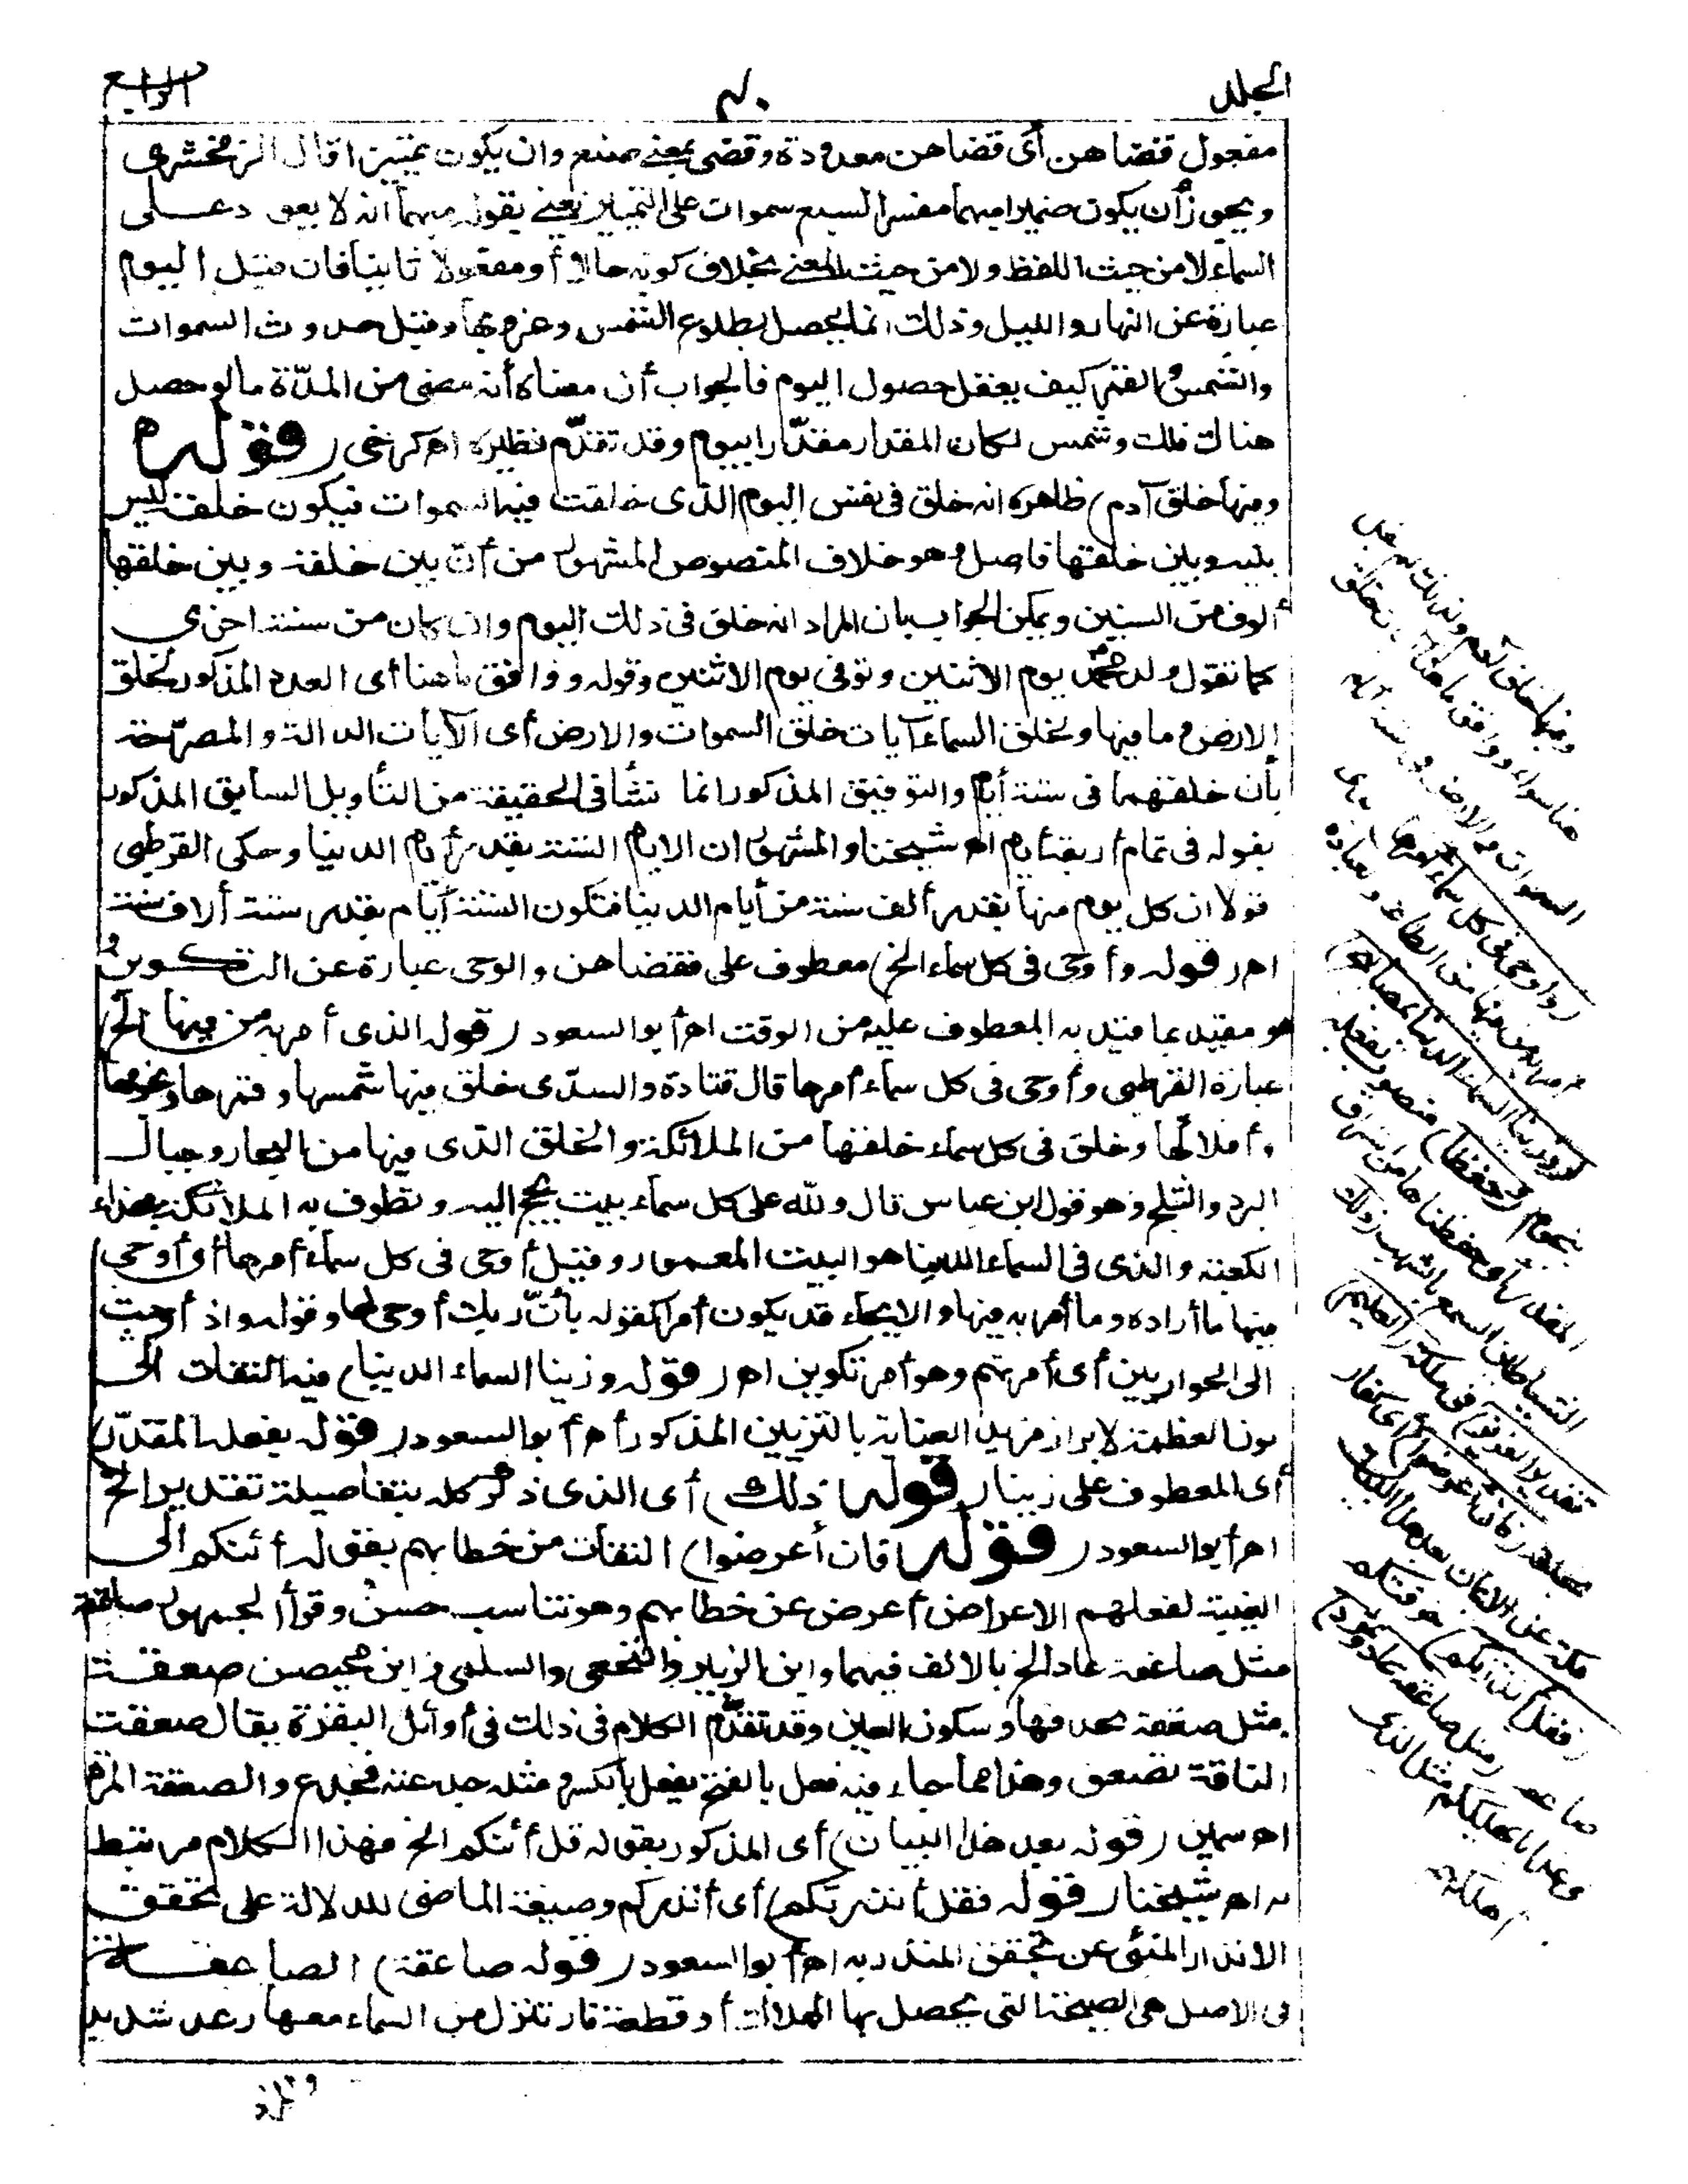 الجلد
٤٠
الرابع
مفعول قضاهن أى قضاهن معدودة وقضى بمعنى صنع وان يكون تمييزا قال الزمخشرى
ويجوز أن يكون ضميرا مبهما مفسرا لسبع سموات على التمييز يعنى يقوله مبهما انه لا يعود على
السماء لا من حيث اللفظ ولا من حيث المعنى بخلاف كونه حالا أو مفعولا ثانيا فان قيل اليوم
عبارة عن النهار والليل وذلك انما يحصل بطلوع الشمس وغروبها وقبل حدوث السموات
والشمس والقمر كيف يعقل حصول اليوم فالجواب أن معناه أنه مضى من المدّة ما لو حصل
هناك فلك وشمس لكان المقدار مقدّرا بيوم وقد تقدّم نظيره اه كرخى (قوله
وفيها خلق آدم) ظاهره انه خلق فى نفس اليوم الذى خلقت فيه السموات فيكون خلقه ليس
بينه وبين خلقها فاصل وهو خلاف المنصوص المشهور من أن بين خلقه وبين خلقها
ألوف من السنين ويمكن الجواب بان المراد انه خلق فى ذلك اليوم وان كان من سنة اخرى
كما نقول ولد محمد يوم الاثنين وتوفى يوم الاثنين وقوله ووافق ما هنا أى العدد المذكور لخلق
الارض وما فيها ولخلق السماء آيات خلق السموات والارض أى الآيات الدالة والمصرّحة
بأن خلقهما فى ستة أيام والتوفيق المذكور انما نشأ فى الحقيقة من التأويل السابق المذكور
بقوله فى تمام أربعة أيام اه شيخنا والمشهور ان الايام الستة بقدر أيام الدنيا وحكى القرطبى
قولا ان كل يوم منها بقدر ألف سنة من أيام الدنيا فتكون الستة أيام بقدر ستة ألاف سنة
اه (قوله وأوحى فى كل سماء الخ) معطوف على فقضاهن والوحى عبارة عن التكوين و
هو مقيد بما قيد به المعطوف عليه من الوقت اه أبو السعود (قوله الذى أمر به من فيها الخ)
عبارة القرطبى وأوحى فى كل سماء أمرها قال قتادة والسدّى خلق فيها شمسها وقمرها ونجومها
وأفلاكها وخلق فى كل سماء خلقها من الملائكة والخلق الذى فيها من البحار وجبال
البرد والثلج وهو قول ابن عباس قال ولله على كل سماء بيت يحج اليه وتطوف به الملائكة بحذاء
الكعبة والذى فى السماء الدنيا هو البيت المعمور وقيل أوحى فى كل سماء أمرها أى أوحى
فيها ما أراده وما أمر به فيها والايحاء قد يكون أمرا كقوله بأنّ ربك أوحى لها وقوله واذ أوحيت
الى الحواريين أى أمرتهم وهو أمر تكوين اه (قوله وزينا السماء الدنيا) فيه التفات الى
نون العظمة لابراز مزيد العناية بالتزيين المذكور اه أبو السعود (قوله بفعله المقدّر)
أى المعطوف على زينا (قوله ذلك) أى الذى ذكر كله بتفاصيله تقدير الخ
اه أبو السعود (قوله فان أعرضوا) التفات من خطابهم بقوله أئنكم الى
الغيبة لفعلهم الاعراض أعرض عن خطابهم وهو تناسب حسن وقرأ الجمهور صاعقة
مثل صاعقة عاد الخ بالالف فيهما وابن الزبير والنخعى والسلمى وابن محيصن صعقة
مثل صعقة بحذفها وسكون العين وقد تقدّم الكلام فى ذلك فى أوائل البقرة يقال صعقت
الناقة تصعق وهذا مما جاء فيه فعل بالفتح يفعل بالكسر ومثله جدعته فجدع والصعقة المرة
اه سمين (قوله بعد هذا البيان) أى المذكور بقوله قل أئنكم الخ فهذا الكلام مرتبط
به اه شيخنا (قوله فقل أنذرتكم) أى أنذركم وصيغة الماضى للدلالة على تحقق
الانذار المنبئ عن تحقق المنذر به اه أبو السعود (قوله صاعقة) الصاعقة
فى الاصل هى الصيحة التى يحصل بها الهلاك أو قطعة نار تنزل من السماء معها رعد شديد
وفيها خلق آدم ولذلك لم يقل
هنا سواء ووافق ما هنا آيات خلق
السموات والارض فى ستة أيام
(وأوحى فى كل سماء أمرها) الذى
أمر به من فيها من الطاعة والعبادة
(وزينا السماء الدنيا بمصابيح)
بنجوم (وحفظا) منصوب بفعله
المقدر أى حفظناها من استراق
الشياطين السمع بالشهب (ذلك
تقدير العزيز) فى ملكه (العليم)
بخلقه (فان أعرضوا) أى كفار
مكة عن الايمان بعد هذا البيان
(فقل أنذرتكم) خوفتكم
صاعقة (مثل صاعقة عاد وثمود)
وعذابا يهلككم مثل الذى
أهلكهم